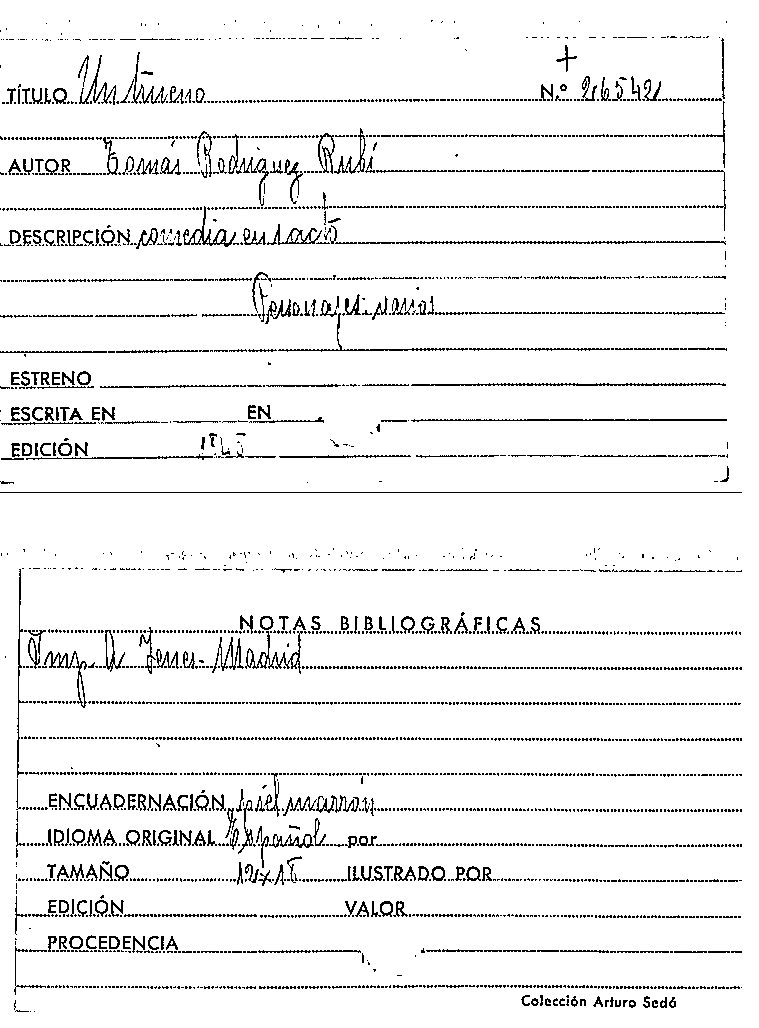 +
TÍTULO Un trueno N.º 26542
AUTOR Tomás Rodriguez Rubí
DESCRIPCIÓN comedia en 1 acto
Personajes: varios
ESTRENO
ESCRITA EN EN
EDICIÓN
NOTAS BIBLIOGRÁFICAS
Imp. A Madrid
ENCUADERNACIÓN piel marrón
IDIOMA ORIGINAL Español por
TAMAÑO 12x18 ILUSTRADO POR
EDICIÓN VALOR
PROCEDENCIA
Colección Arturo Sedó